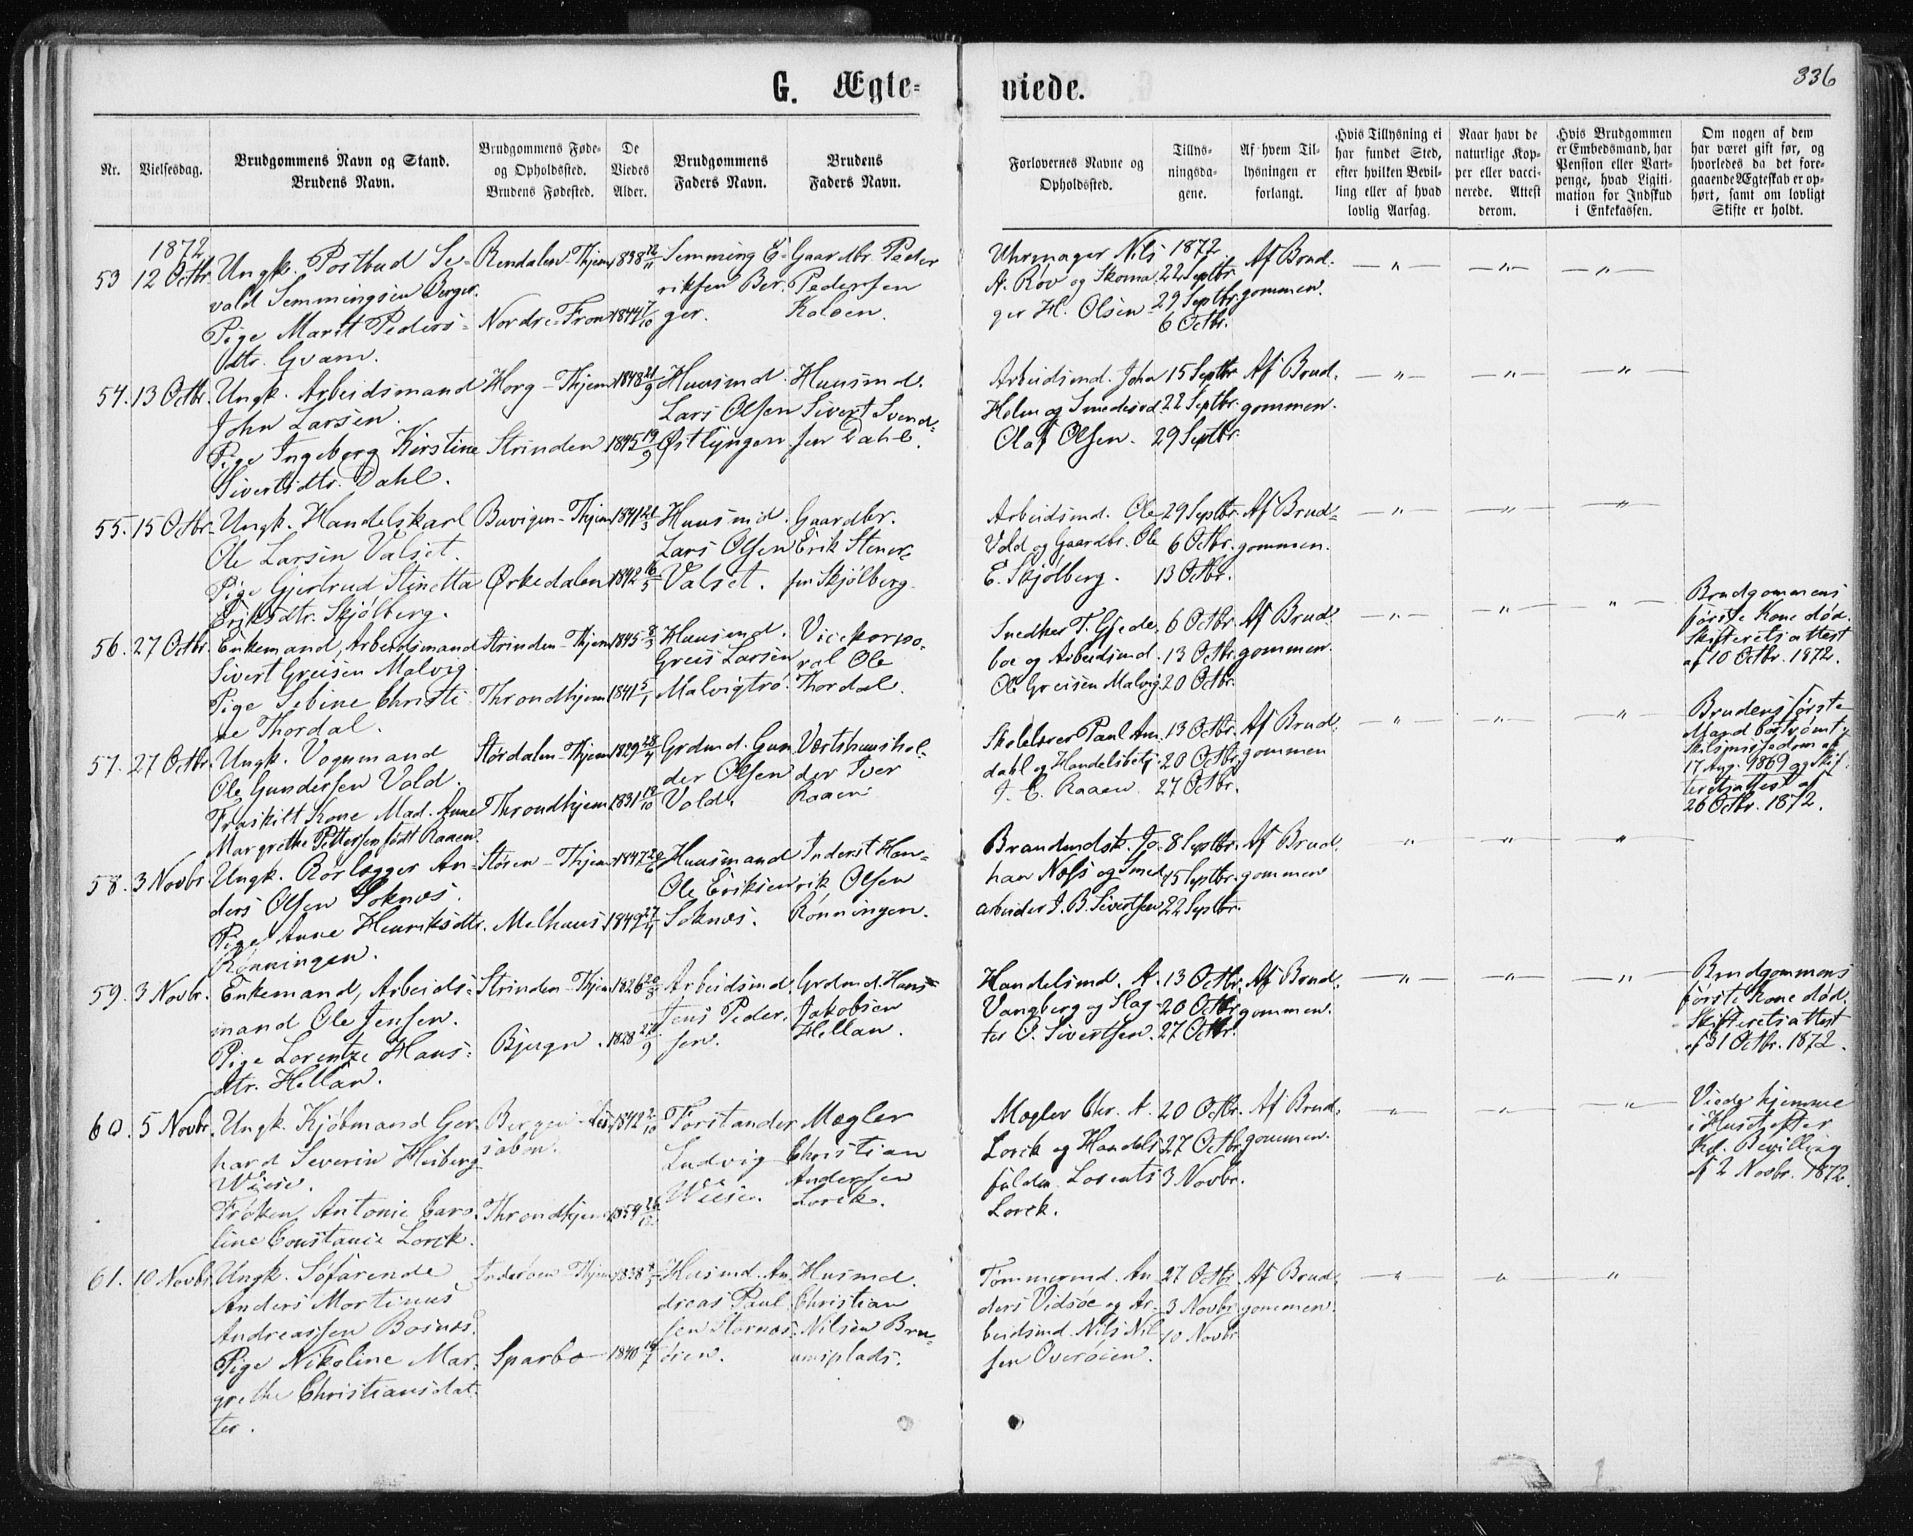 336
G. Ægte-
viede.
Nr.
Vielsesdag.
Brudgommens Navn og Stand.
Brudens Navn.
Brudgommens Føde-
og Opholdssted.
Brudens Fødested.
De
Viedes
Alder.
Brudgommens
Faders Navn.
Brudens
Faders Navn.
Forlovernes Navne og
Opholdssted.
Tillys-
ningsda-
gene.
Af hvem Til-
lysningen er
forlangt.
Hvis Tillysning ei
har fundet Sted,
efter hvilken Bevil-
ling eller af hvad
lovlig Aarsag.
Naar havt de
naturlige Kop-
per eller vacci-
nerede. Attest
derom.
Hvis Brudgommen
er Embedsmand, har
Pension eller Vart-
penge, hvad Ligiti-
mation for Indskud
i Enkekassen.
Om nogen af dem
har været gift før, og
hvorledes da det fore-
gaaende Ægteskab er op-
hørt, samt om lovligt
Skifte er holdt.
1872
53 12 Octbr.
Ungk. Postbud Se-
vald Semmingsen Berger.
Pige Marit Peders-
dtr. Gvam.
Rendalen - Thjem
Nordre-Fron
1838 12/11
1844 7/10
Semming E-
riksen Ber-
ger.
Gaardbr. Peder
Pedersen
Koloen.
Uhrmager Nils
A. Røv og Skoma-
ger H. Olsen
1872
22 Septbr.
29 Septbr.
6 Octbr.
Af Brud-
gommen.
54. 13 Octbr.
Ungk. Arbeidsmand
John Larsen.
Pige Ingeborg Kirstine
Sivertsdtr. Dahl.
Horg - Thjem
Strinden
1848 21/9
1845 19/9
Huusmd.
Lars Olsen
Østlyngen
Huusmd.
Sivert Svend-
sen Dahl.
Arbeidsmd. John
Holm og Smedesvd
Olaf Olsen.
15 Septbr.
22 Septbr.
29 Septbr.
Af Brud-
gommen.
55. 15 Octbr.
Ungk. Handelskarl
Ole Larsen Valset.
Pige Gjertrud Stinetta
Eriksdtr. Skjølberg.
Buvigen - Thjem
Ørkedalen
1841 21/3
1842 16/5
Huusmd.
Lars Olsen
Valset.
Gaardbr.
Erik Stener-
sen Skjølberg.
Arbeidsmd. Ole
Vold og Gaardbr. Ole
E. Skjølberg.
29 Septbr.
6 Octbr.
13 Octbr.
Af Brud-
gommen.
56. 27 Octbr.
Enkemand, Arbeidsmand
Sivert Greisen Malvig
Pige Sebine Christi-
ne Thordal.
Strinden - Thjem
Throndhjem
1845 8/3
1841 5/1
Huusmd.
Greis Larsen
Malvigtrø.
Vicekorpo-
ral Ole
Thordal.
Snedker T. Gjede-
boe og Arbeidsmd.
Ole Greisen Malvig
6 Octbr.
13 Octbr.
20 Octbr.
Af Brud-
gommen.
Brudgommens
første Kone død.
Skifteretsattest
af 10 Octbr. 1872.
57. 27 Octbr.
Ungk. Vognmand
Ole Gundersen Vold.
Fraskilt Kone Mad. Anne
Margrethe Pettersen født Raaen.
Størdalen - Thjem
Throndhjem
1829 28/4
1831 19/10
Grdmd. Gun-
der Olsen
Vold.
Værtshuushol-
der Iver
Raaen
Skolelærer Paul Am-
dahl og Handelsbetj.
J. C. Raaen.
13 Octbr.
20 Octbr.
27 Octbr.
Af Brud-
gommen
Brudens første
Mand bortrømt,
Skilsmissedom af
17 Aug. 1869 og Skif-
teretsattest af
26 Octbr. 1872.
58. 3 Novbr.
Ungk. Rørlægger An-
ders Olsen Soknæs.
Pige Anne Henriksdtr.
Rønningen.
Støren - Thjem
Melhuus.
1849 27/4
Huusmand
Ole Eriksen
Soknæs.
Inderst Hen-
rik Olsen
Rønningen.
Brandmdsk. Jo-
han Næss og Smed-
arbeider J. B. Sivertsen
8 Septbr.
15 Septbr.
22 Septbr.
Af Brud-
gommen
59. 3 Novbr.
Enkemand, Arbeids-
mand Ole Jensen.
Pige Lorentze Hans-
dtr. Hellan.
Strinden - Thjem
Bjugn.
1826 20/8
1828 27/9
Arbeidsmd.
Jens Peder-
sen.
Grdmd. Hans
Jakobsen
Hellan.
Handelsmd. A.
Vangberg og Slag-
ter O. Sivertsen.
13 Octbr.
20 Octbr.
27 Octbr.
Af Brud-
gommen.
Brudgommens
første Kone død.
Skifteretsattest
af 31 Octbr. 1872.
60. 5 Novbr.
Ungk. Kjøbmand Ger-
hard Severin Heiberg
Wiese.
Frøken Antonie Caro-
line Constance Lorck.
Bergen - Lis-
sabon.
Throndhjem
1842 2/10
Forstander
Ludvig
Wiese.
Mægler
Christian
Andersen
Lorck.
Mægler Chr. A.
Lorck og Handels-
fuldm. Lorents
Lorck.
20 Octbr.
27 Octbr.
3 Novbr.
Af Brud-
gommen.
Viede hjemme
i Huset efter
Kgl. Bevilling
af 2 Novbr. 1872.
61. 10 Novbr.
Ungk. Søfarende
Anders Martinus
Andreassen Bosnæs.
Pige Nikoline Mar-
grethe Christiansdat-
ter.
Inderøen - Thjem
Sparbo
1840 14/7
Husmd. An-
dreas Paul-
sen Stornæs-
øien.
Husmd.
Christian
Nilsen Bru-
umsplads.
Tømmermd. An-
ders Vidsøe og Ar-
beidsmd. Nils Nil-
sen Overøien.
27 Octbr.
3 Novbr.
10 Novbr.
Af Brud-
gommen.